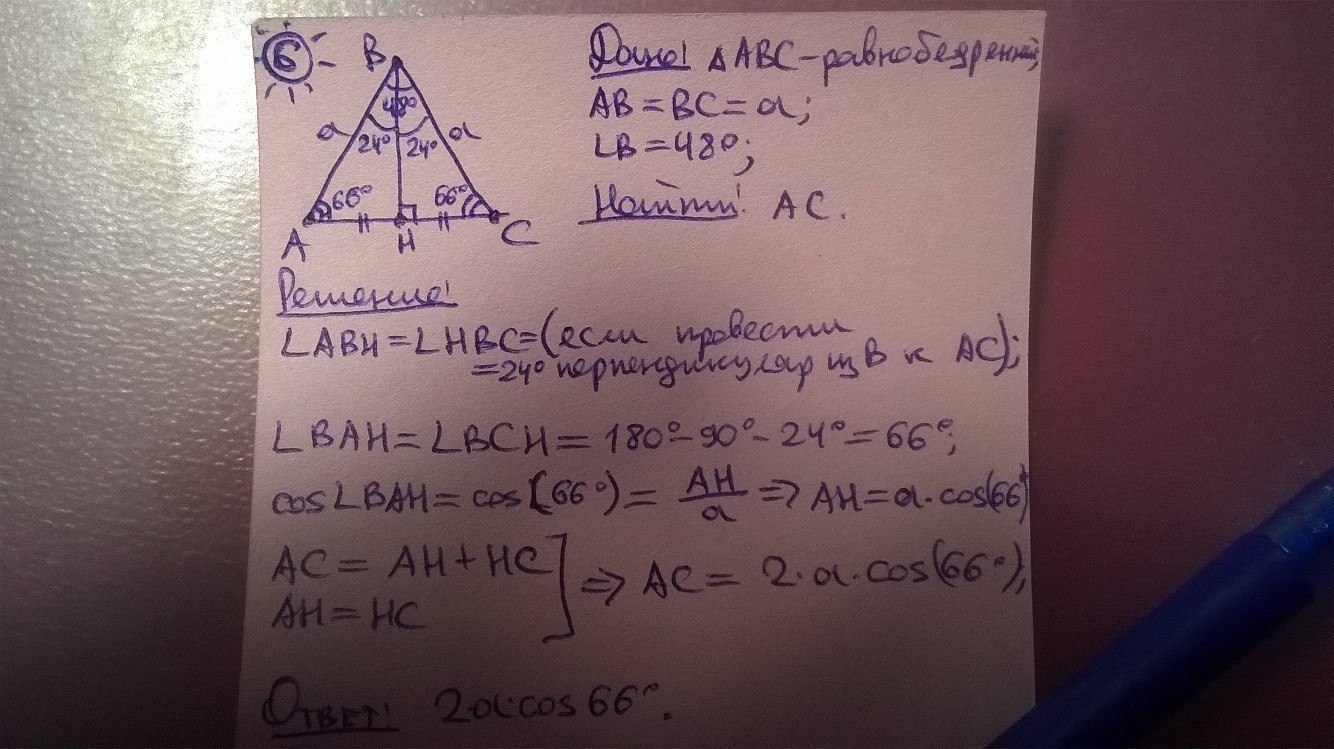 6
B
48°
a 24° 24° a
66° 66°
A H C
Дано! △ABC-равнобедренный,
AB = BC = a;
∠B = 48°;
Найти! AC.
Решение!
∠ABH = ∠HBC = (если провести
= 24° перпендикуляр из B к AC);
∠BAH = ∠BCH = 180° - 90° - 24° = 66°;
cos∠BAH = cos(66°) = AH/a => AH = a·cos(66°)
AC = AH + HC
AH = HC
] => AC = 2·a·cos(66°);
Ответ! 2a·cos66°.